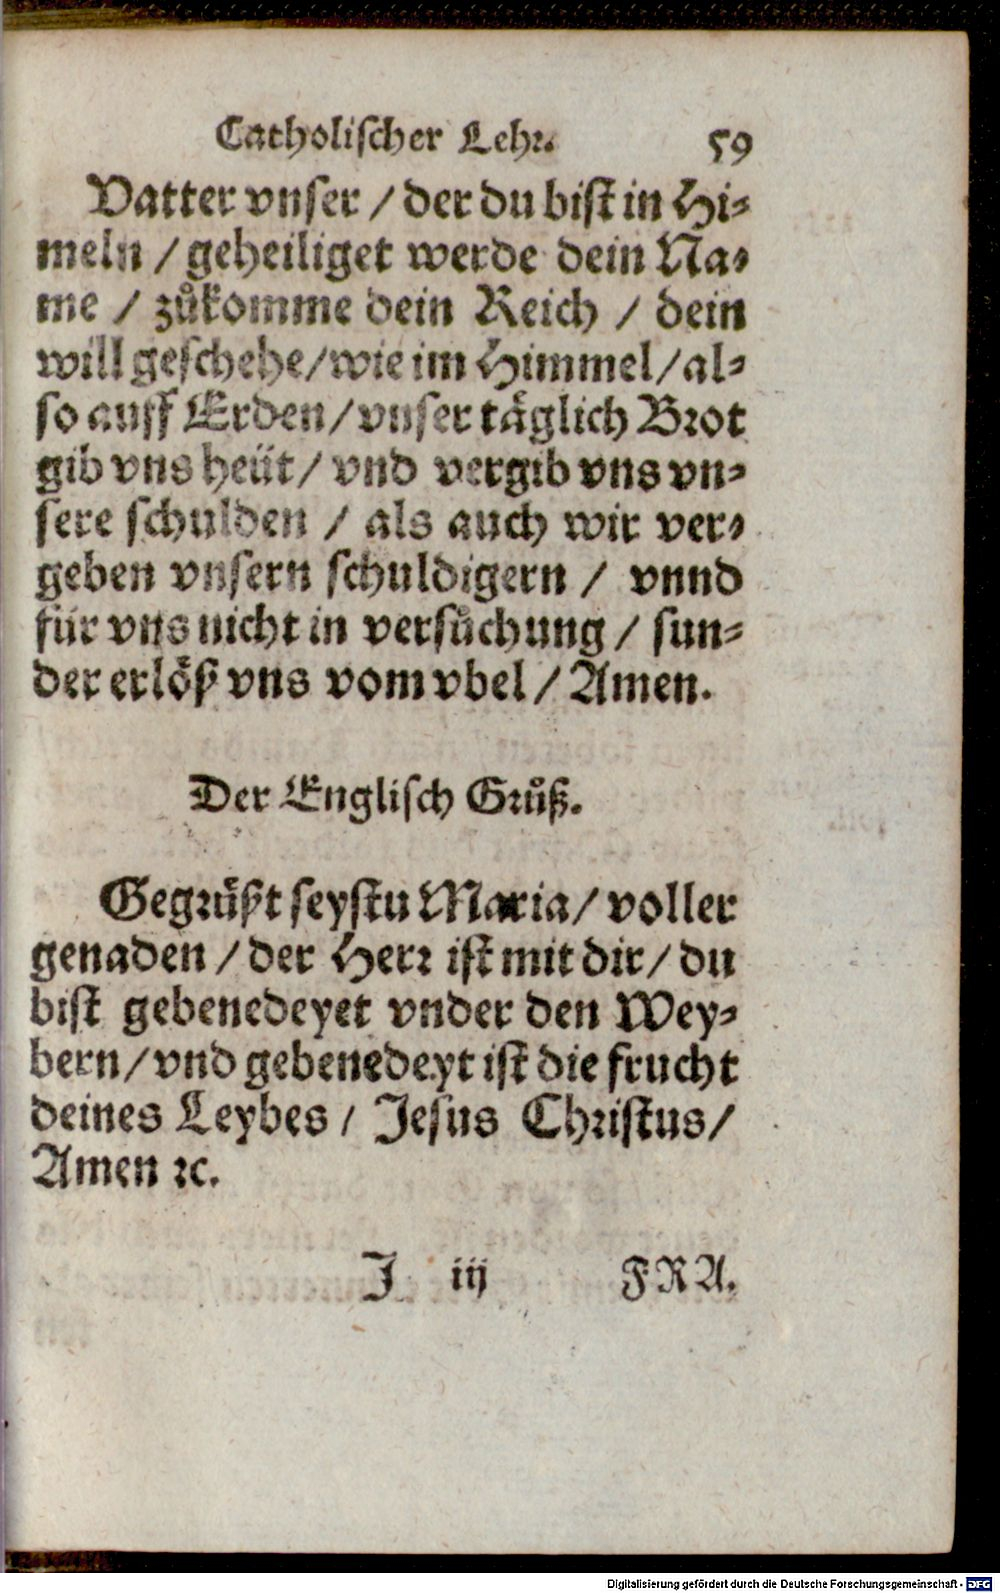 Catholischer Lehr. 59
Vatter vnser / der du bist in Hi-
meln / geheiliget werde dein Na-
me / zůkomme dein Reich / dein
will geschehe / wie im Himmel / al-
so auff Erden / vnser täglich Brot
gib vns heüt / vnd vergib vns vn-
sere schulden / als auch wir ver-
geben vnsern schuldigern / vnnd
für vns nicht in versůchung / sun-
der erlöß vns vom vbel / Amen.
Der Englisch Grůß.
Gegrüßt seystu Maria / voller
genaden / der Herr ist mit dir / du
bist gebenedeyet vnder den Wey-
bern / vnd gebenedeyt ist die frucht
deines Leybes / Jesus Christus /
Amen ꝛc.
J iij FRA.
Digitalisierung gefördert durch die Deutsche Forschungsgemeinschaft - DFG